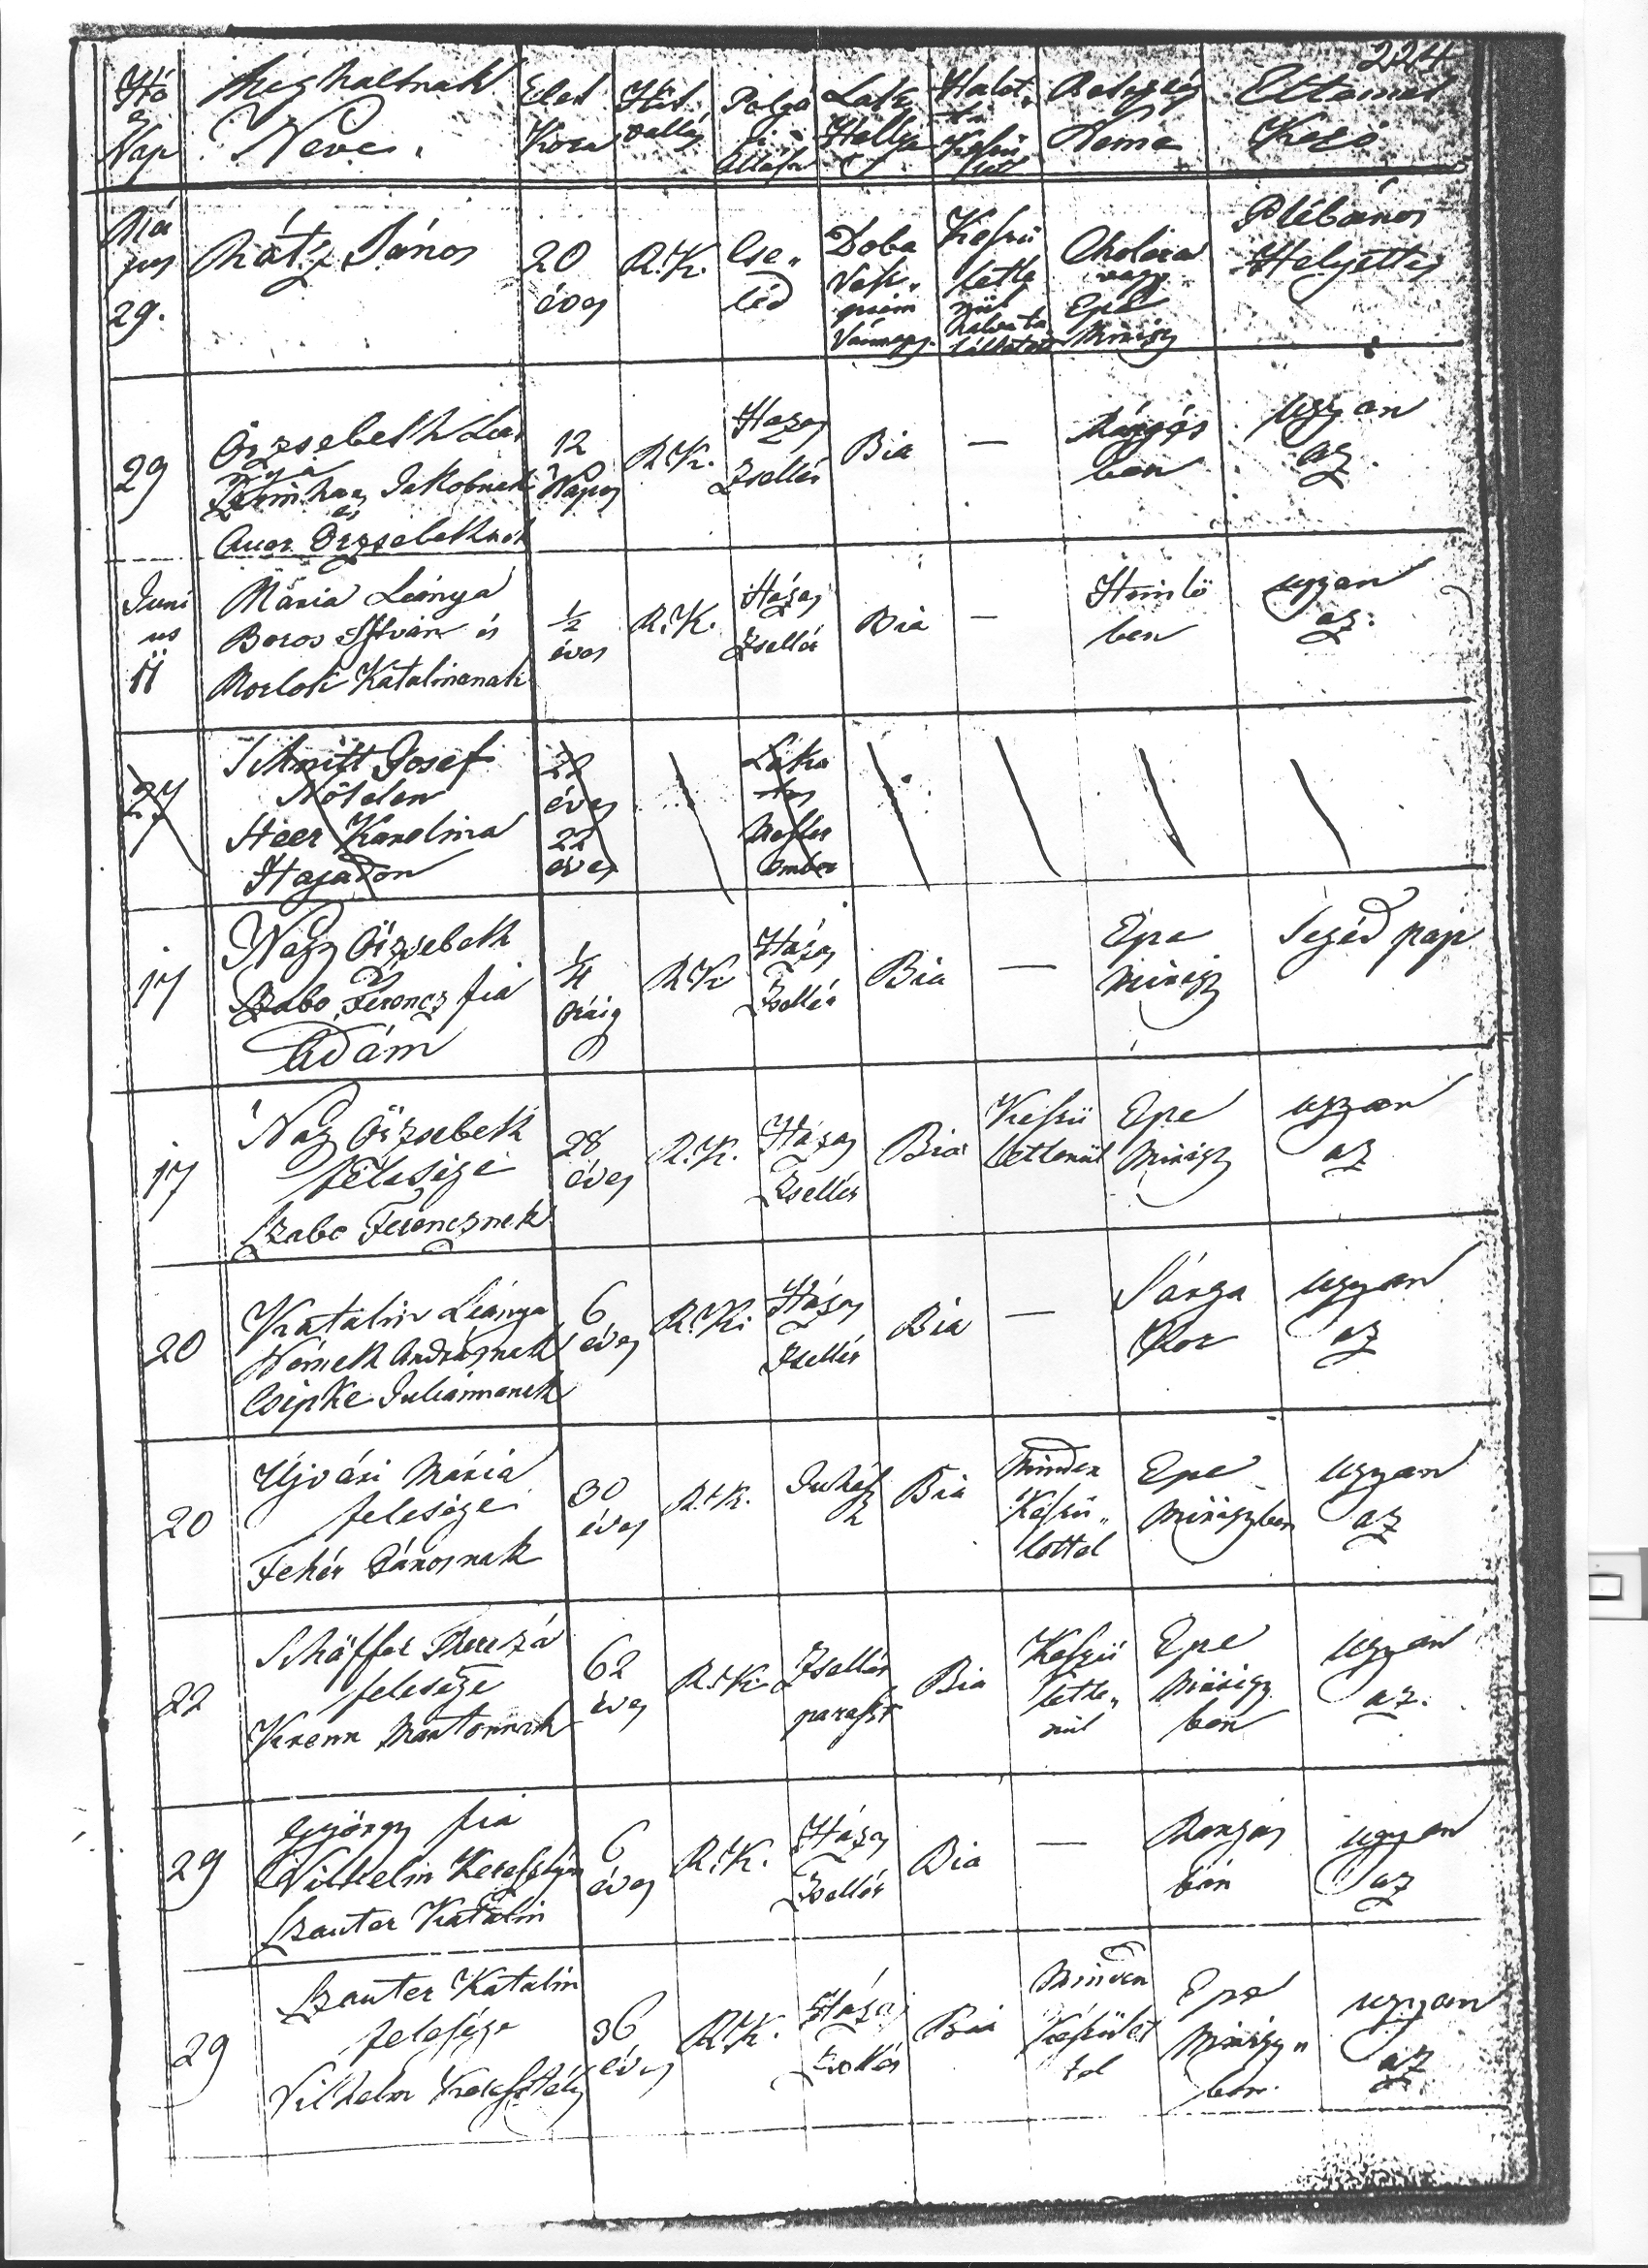 224
Hó és Nap
Meghaltnak Neve.
Élet Kora
Hit vallás
Polgá ri állása
Lak Hellye
Halot. Késű let
Betegség Neme
Eltemet Kező
Má jus 29.
Rátz János
20 éves
R. K.
Cse„ léd
Doba Vesz„ prém Vármegy.
Készü letle nül halva ta láltatott
Cholera vagy Epe Mirigy
Plébános Helyettes
29
Örzsebeth Leá nya
Jakobnak és
Auer Örzsebethnek
12 Napos
R. K.
Hazas Zsellér
Bia
—
Rángás ban
ugyan az.
Juni us 11
Mária Leánya
Boros István és
Morlok Katalinanak
½ éves
R. K.
Házas Zsellér
Bia
—
Himlö ben
ugyan az.
27
Schmitt Josef
Nőtelen
Heer Karolina
Hajadon
22 éves
22 éves
Laka tos Mester ember
17
Nagy Örzsebeth
és
Szabo Ferencz fia
Ádám
¼ óráig
R. K.
Házas Zsellér
Bia
—
Epe Mirigy
Segéd pap
17
Nagy Örzsebeth
felesége
Szabo Ferencznek
28 éves
R. K.
Házas Zsellér
Bia
Készü letlenül
Epe Mirigy
ugyan az
20
Katalin Leánya
Németh Andrásnak
Csipke Juliánnanak
6 éves
R. K.
Házas Zsellér
Bia
—
Sárga Kor
ugyan az
20
Újvári Mária
felesége
Fehér Jánosnak
30 éves
R. K.
Juhász
Bia
Minden Készü„ lettel
Epe Mirigyben
ugyan az
22
Schäffer Therezá
felesége
Krenn Mártonnak
62 éves
R. K.
Zsellér paraszt
Bia
Készü letle„ nül
Epe Mirigy ben
ugyan az.
29
György fia
Vilhelm Keresztély
Szauter Katalin
6 éves
R. K.
Házas Zsellér
Bia
—
Rángás bán
ugyan az
29
Szauter Katalin
felesége
Vilhelm Keresztély
36 éves
R. K.
Házas Zsellér
Bia
Minden Készület tel
Epe Mirigy„ ben.
ugyan az